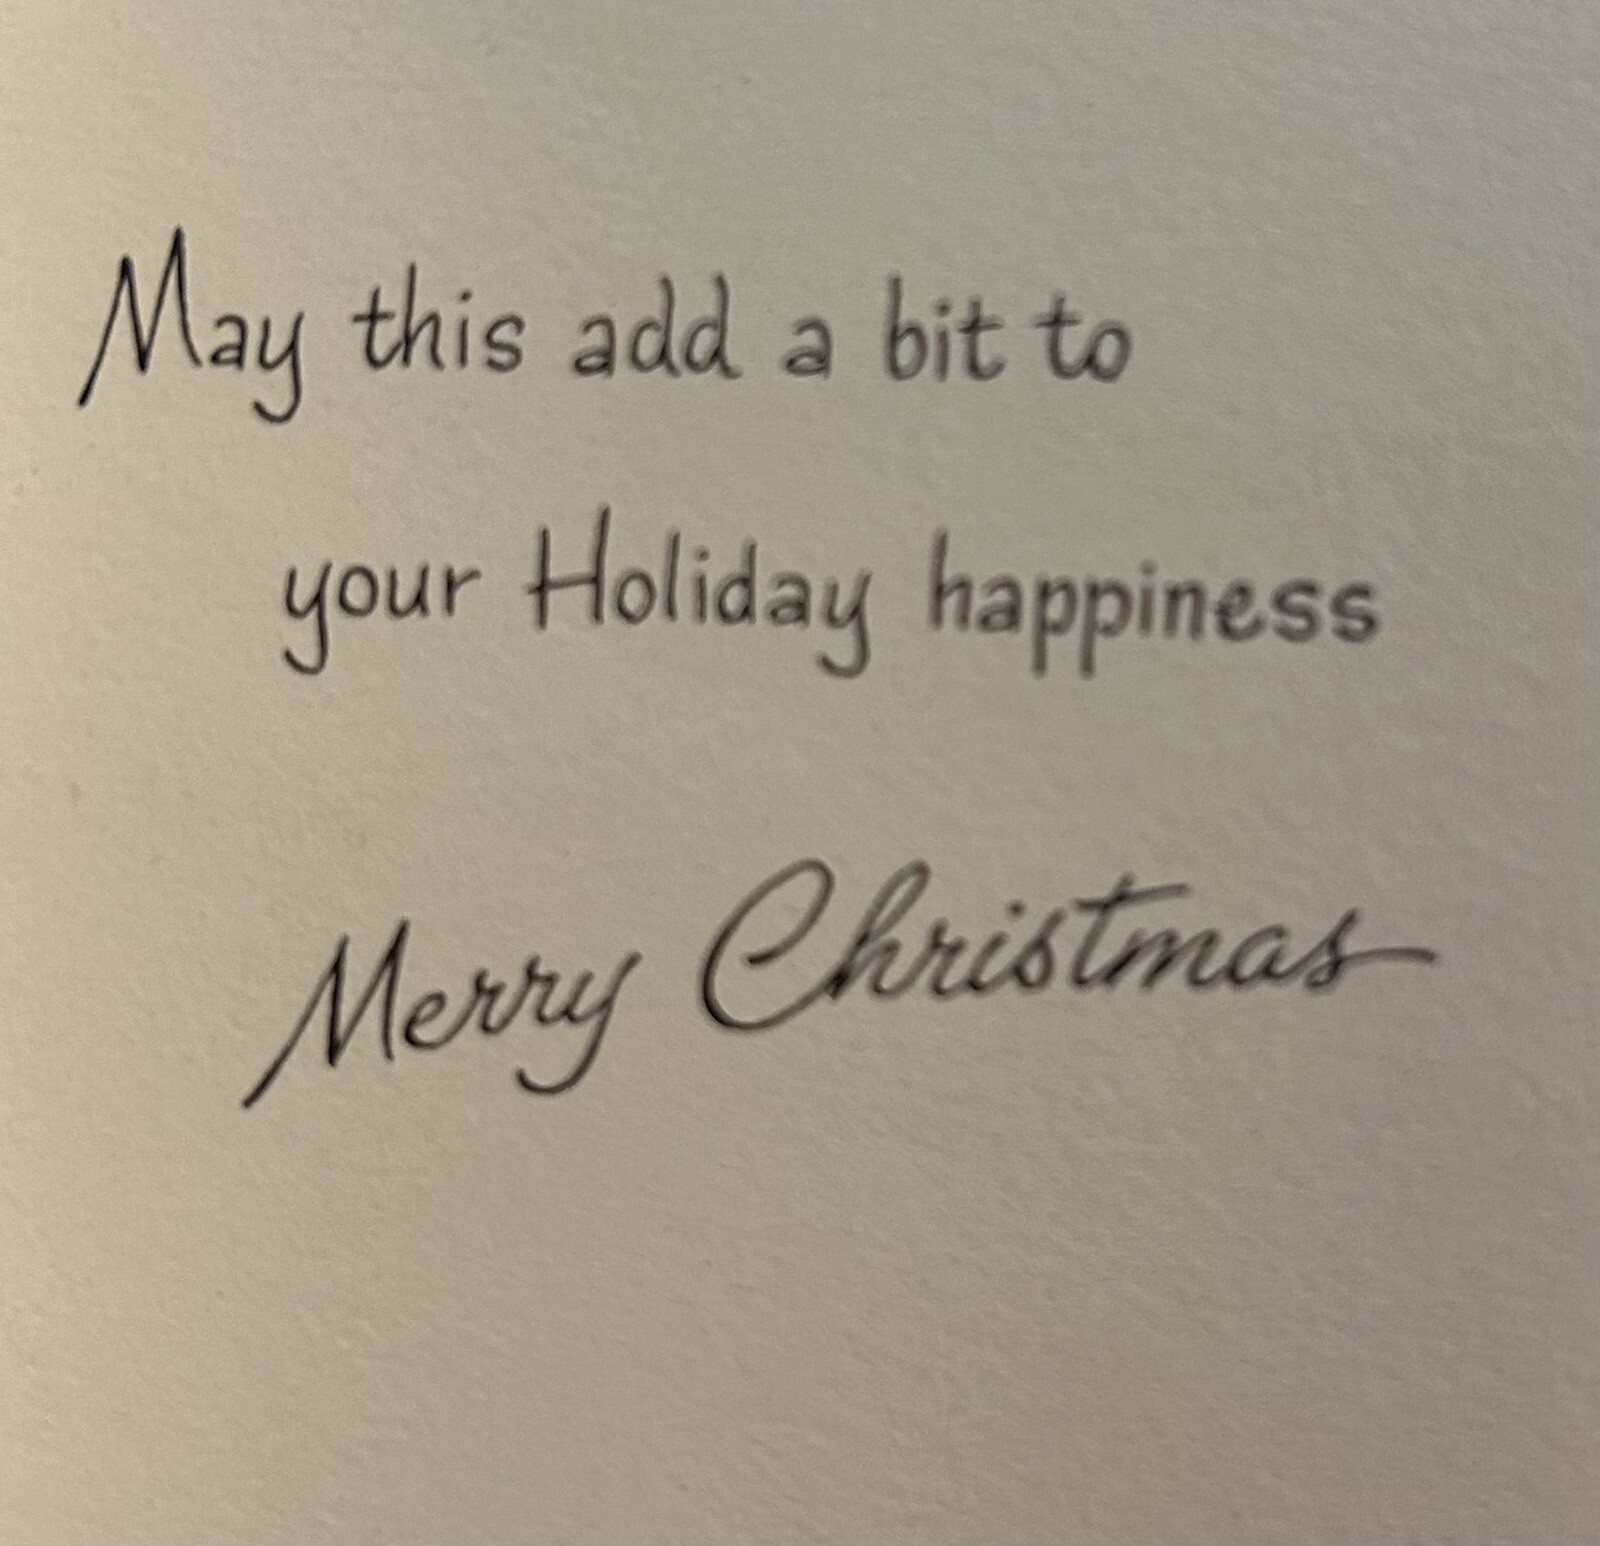 May this add a bit to
your Holiday happiness
Merry Christmas